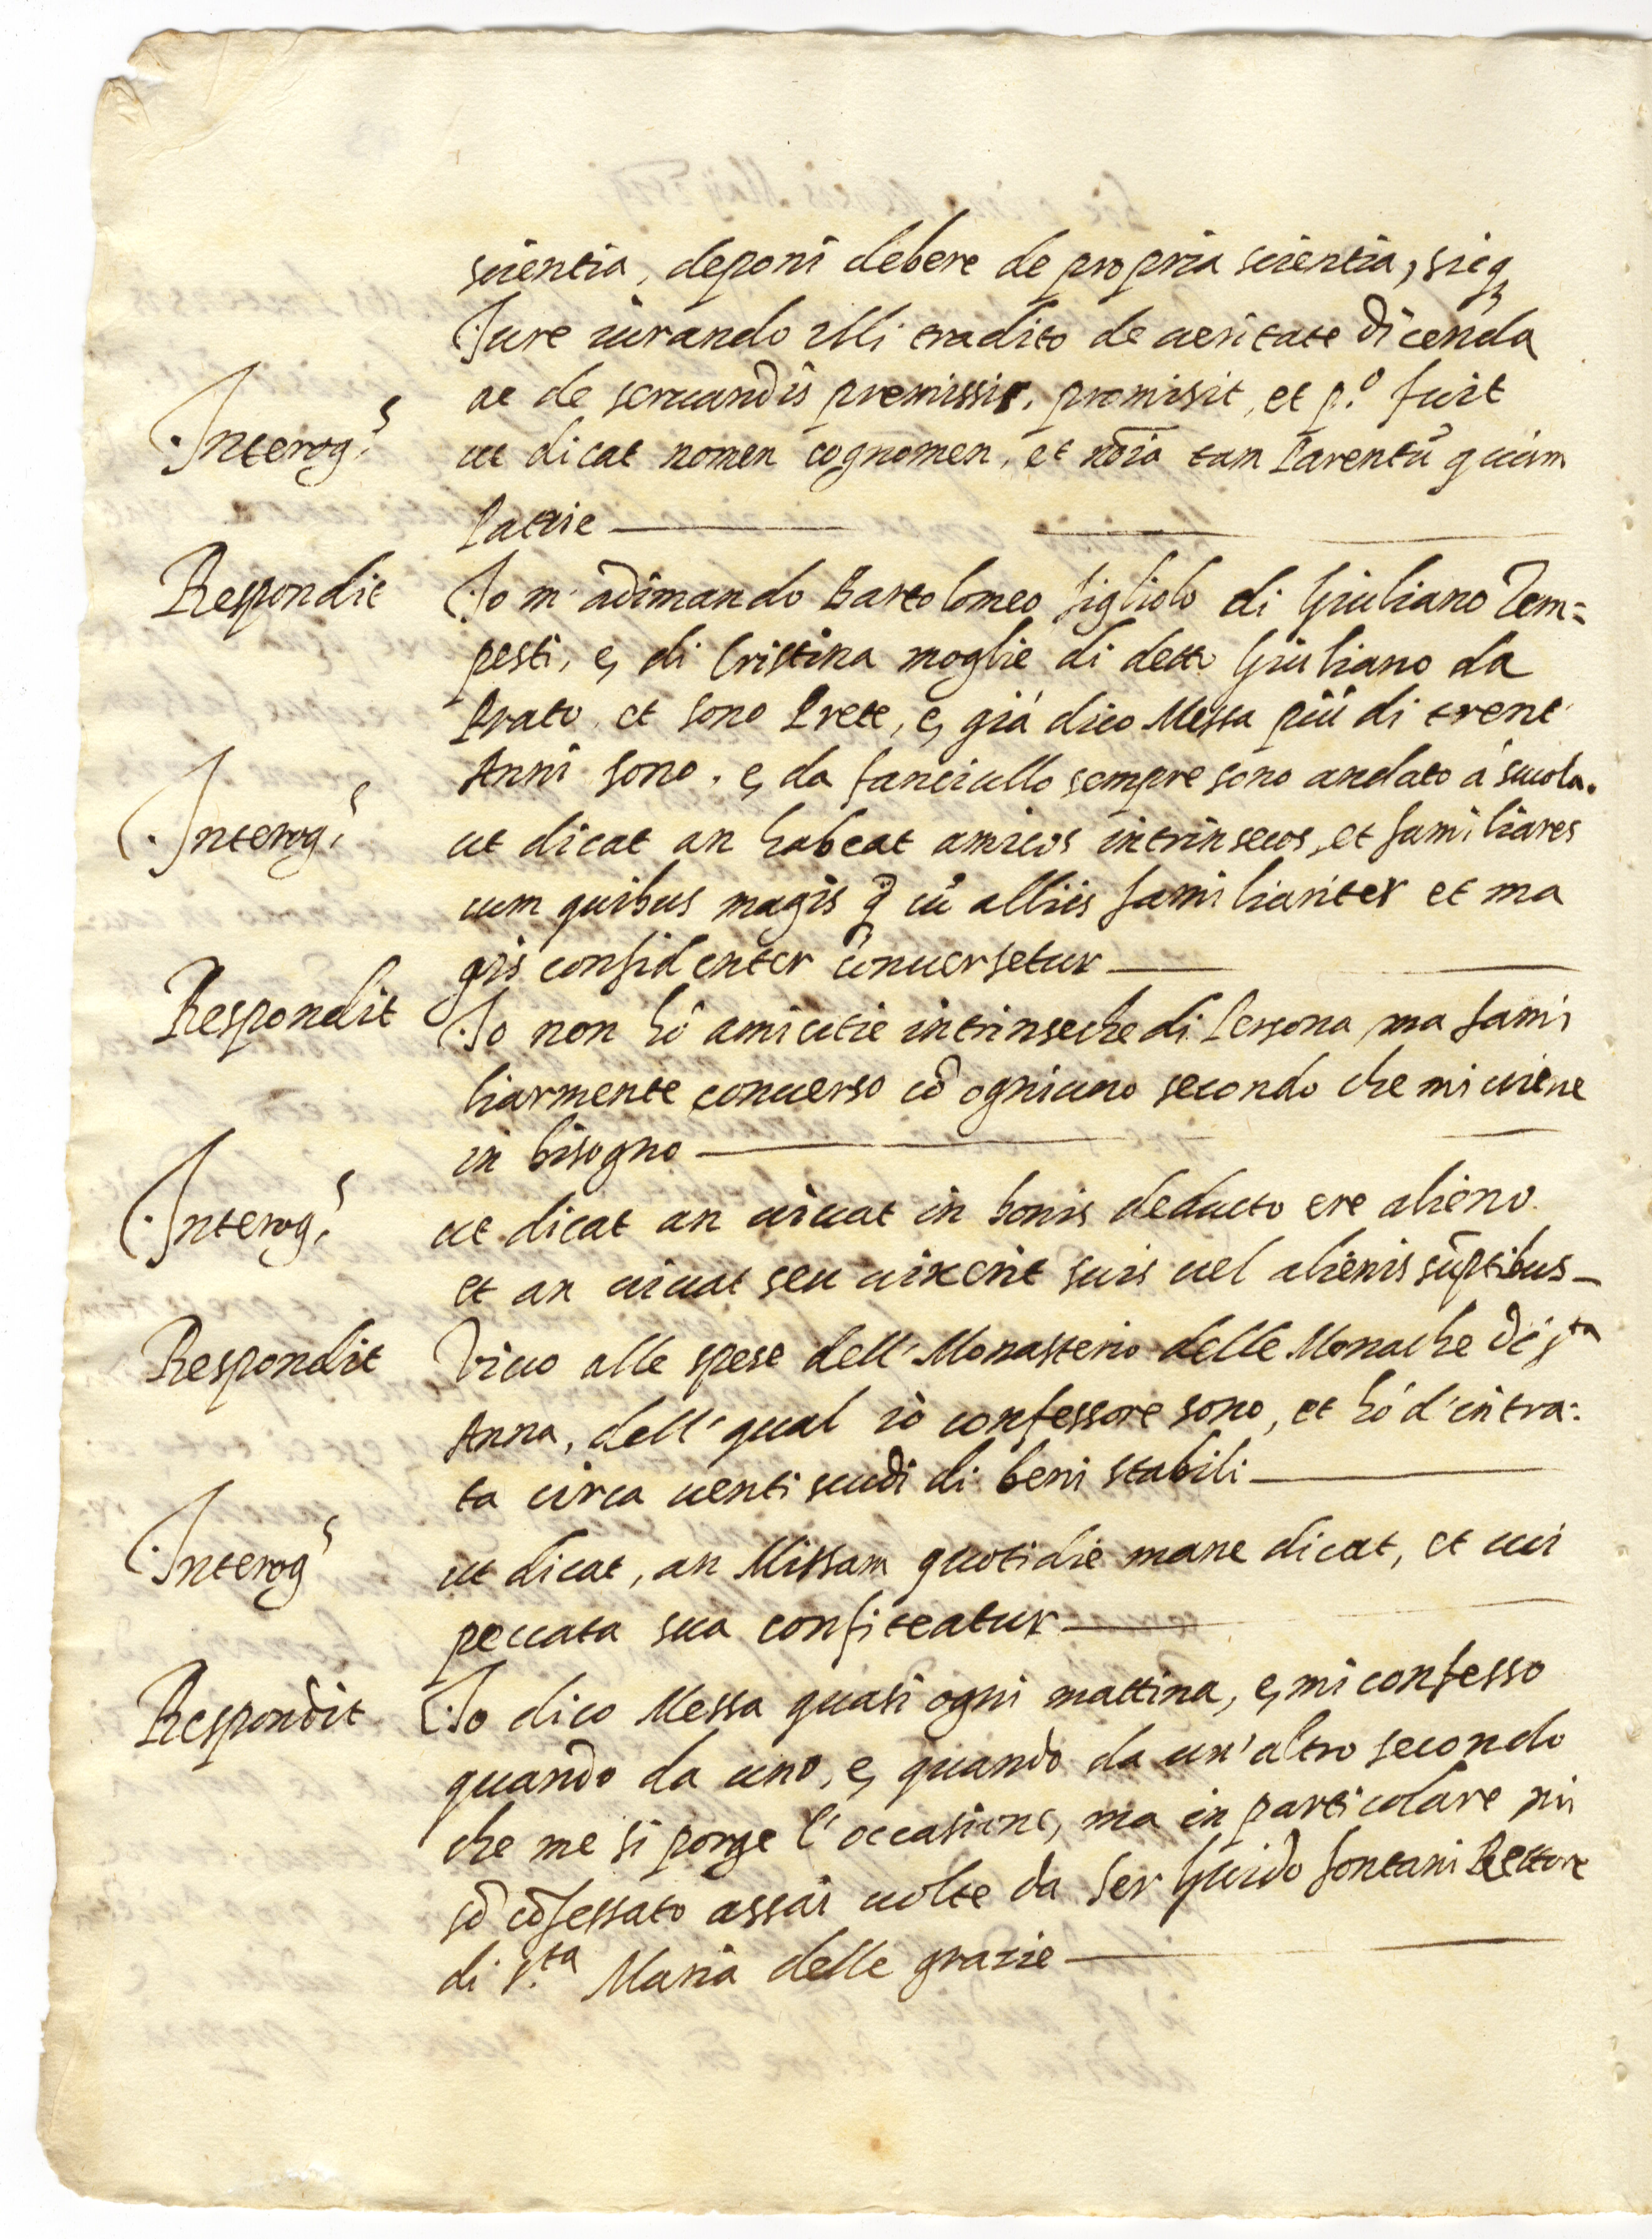 scientia, deponi debere de propria scientia, sicq3
Jure iurando illi tradito de ueritate dicenda
ac de seruandis premissis, promisit, et p.º fuit
Interog.s ut dicat nomen cognomen, et noĩa tam Parentũ quam
Patrie
Respondit Jo m'adimando Bartolomeo figliolo di Giuliano Tem=
pesti, e, di Cristina moglie di detto Giuliano da
Prato, et sono Prete, e, già dico Messa più di trent'
Anni sono, e, da fanciullo sempre sono andato à scuola.
Interog.s ut dicat an habeat amicos intrinsecos, et familiares
cum quibus magis q̃ cũ alliis familiariter et ma
gis confidenter cõuersetur
Respondit Jo non hò amicitie intrinseche di Persona, ma fami
liarmente conuerso cõ ogniuno secondo che mi uiene
in bisogno
Interog.s ut dicat an uiuat in bonis deducto ere alieno
et an uiuat seu uixerit suis uel alienis sũptibus
Respondit Viuo alle spese dell'Monasterio delle Monache di S.ta
Anna, dell'qual iò confessore sono, et hò d'intra=
ta circa uenti scudi di beni stabili
Interog.s ut dicat, an Missam quotidie mane dicat, et cui
peccata sua confiteatur
Respondit Jo dico Messa quasi ogni mattina, e, mi confesso
quando da uno, e, quando da un'altro secondo
che me si porge l'occasione, ma in particolare mi
sõ cõfessato assai uolte da Ser Guido fontani Rettore
di S.ta Maria delle grazie